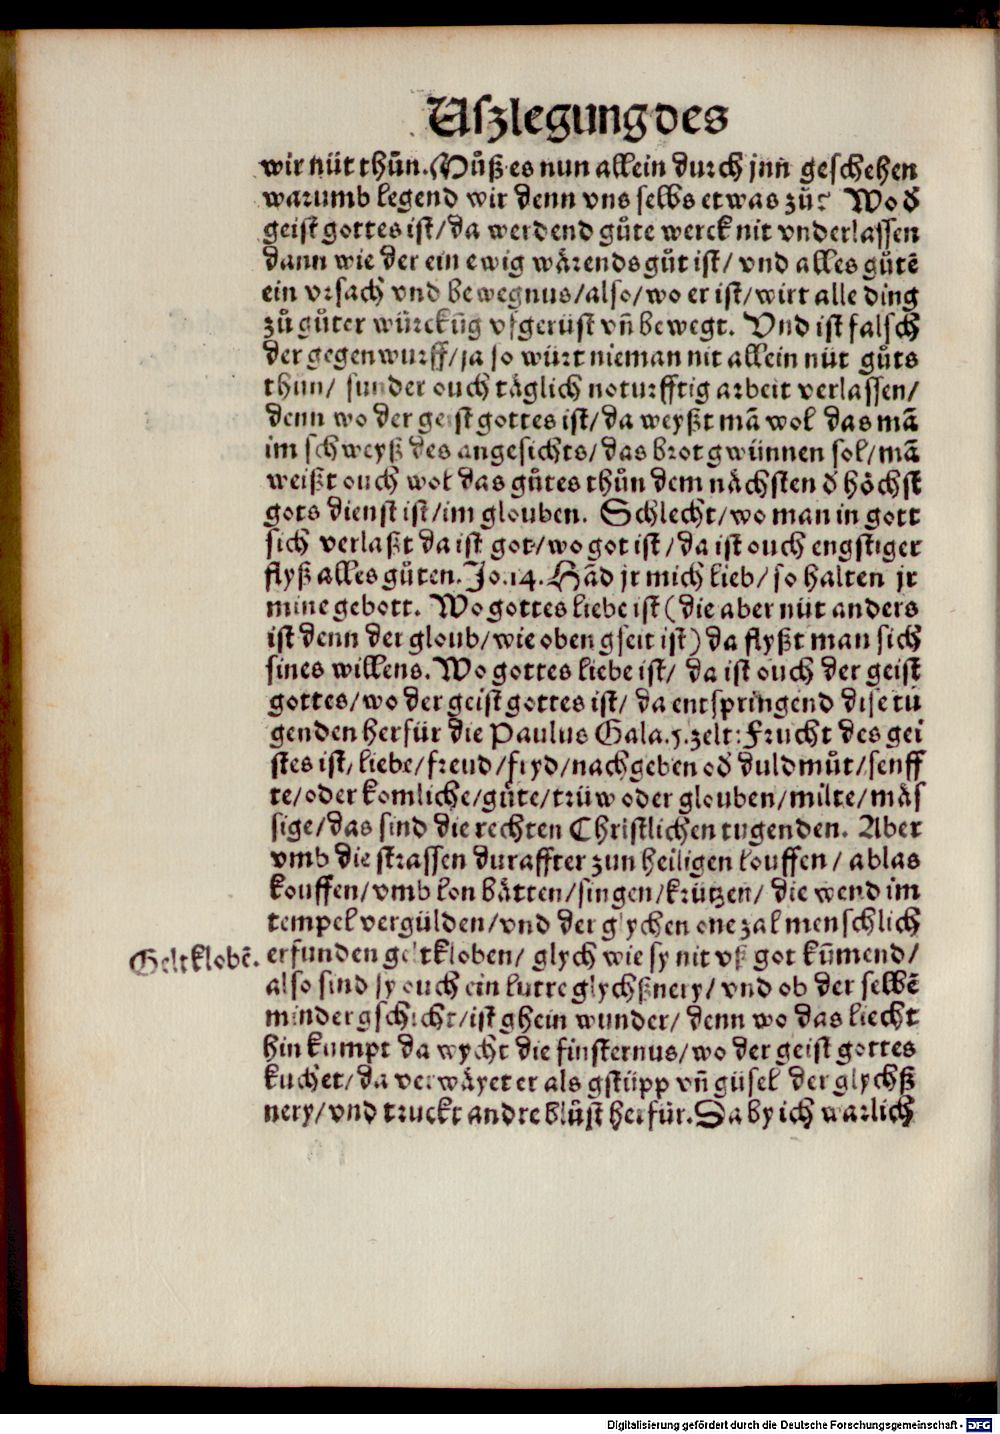 Uſzlegung des
wir nüt thůn. Můß es nun allein durch jnn geſchehen
warumb legend wir denn vns ſelbs etwas zů? Wo d̕
geiſt gottes iſt/ da werdend gůte werck nit vnderlaſſen
dann wie der ein ewig wärends gůt iſt/ vnd alles gůtē
ein vrſach vnd bewegnus/ alſo/ wo er iſt/ wirt alle ding
zů gůter würckūg vfgerüſt vn̄ bewegt. Vnd iſt falſch
der gegenwurff/ ja ſo würt nieman nit allein nüt gůts
thun/ ſunder ouch täglich noturfftig arbeit verlaſſen/
denn wo der geiſt gottes iſt/ da weyßt mā wol das mā
im ſchweyß des angeſichts/ das brot gwünnen ſol/ mā
weißt ouch wol das gůtes thůn dem nächſten d̕ höchſt
gots dienſt iſt/ im glouben. Schlecht/ wo man in gott
ſich verlaßt da iſt got/ wo got iſt/ da iſt ouch engſtiger
flyß alles gůten. Jo.14. Hād jr mich lieb/ ſo halten jr
mine gebott. Wo gottes liebe iſt (die aber nüt anders
iſt denn der gloub/ wie oben gſeit iſt) da flyßt man ſich
ſines willens. Wo gottes liebe iſt/ da iſt ouch der geiſt
gottes/ wo der geiſt gottes iſt/ da entſpringend diſe tu
genden herfür die Paulus Gala.5. zelt: Frucht des gei
ſtes iſt, liebe/ freud/ fryd/ nachgeben od̕ duldmůt/ ſenff
te/ oder komliche/ gůte/ trüw oder glouben/ milte/ mäſ
ſige/ das ſind die rechten Chriſtlichen tugenden. Aber
vmb die ſtraſſen duraffter zun heiligen louffen/ ablas
kouffen/ vmb lon bätten/ ſingen/ krützen/ die wend im
tempel vergülden/ vnd der glychen one zal menſchlich
Geltklobē.
erfunden geltkloben/ glych wie ſy nit vß got kūmend/
alſo ſind ſy ouch ein lutre glychßnery/ vnd ob der ſelbē
minder gſchicht/ iſt ghein wunder/ denn wo das liecht
hin kumpt da wycht die finſternus/ wo der geiſt gottes
kuchet/ da verwäyet er als gſtüpp vn̄ güſel der glychß
nery/ vnd truckt andre blůſt herfür. Da by ich warlich
Digitalisierung gefördert durch die Deutsche Forschungsgemeinschaft - DFG